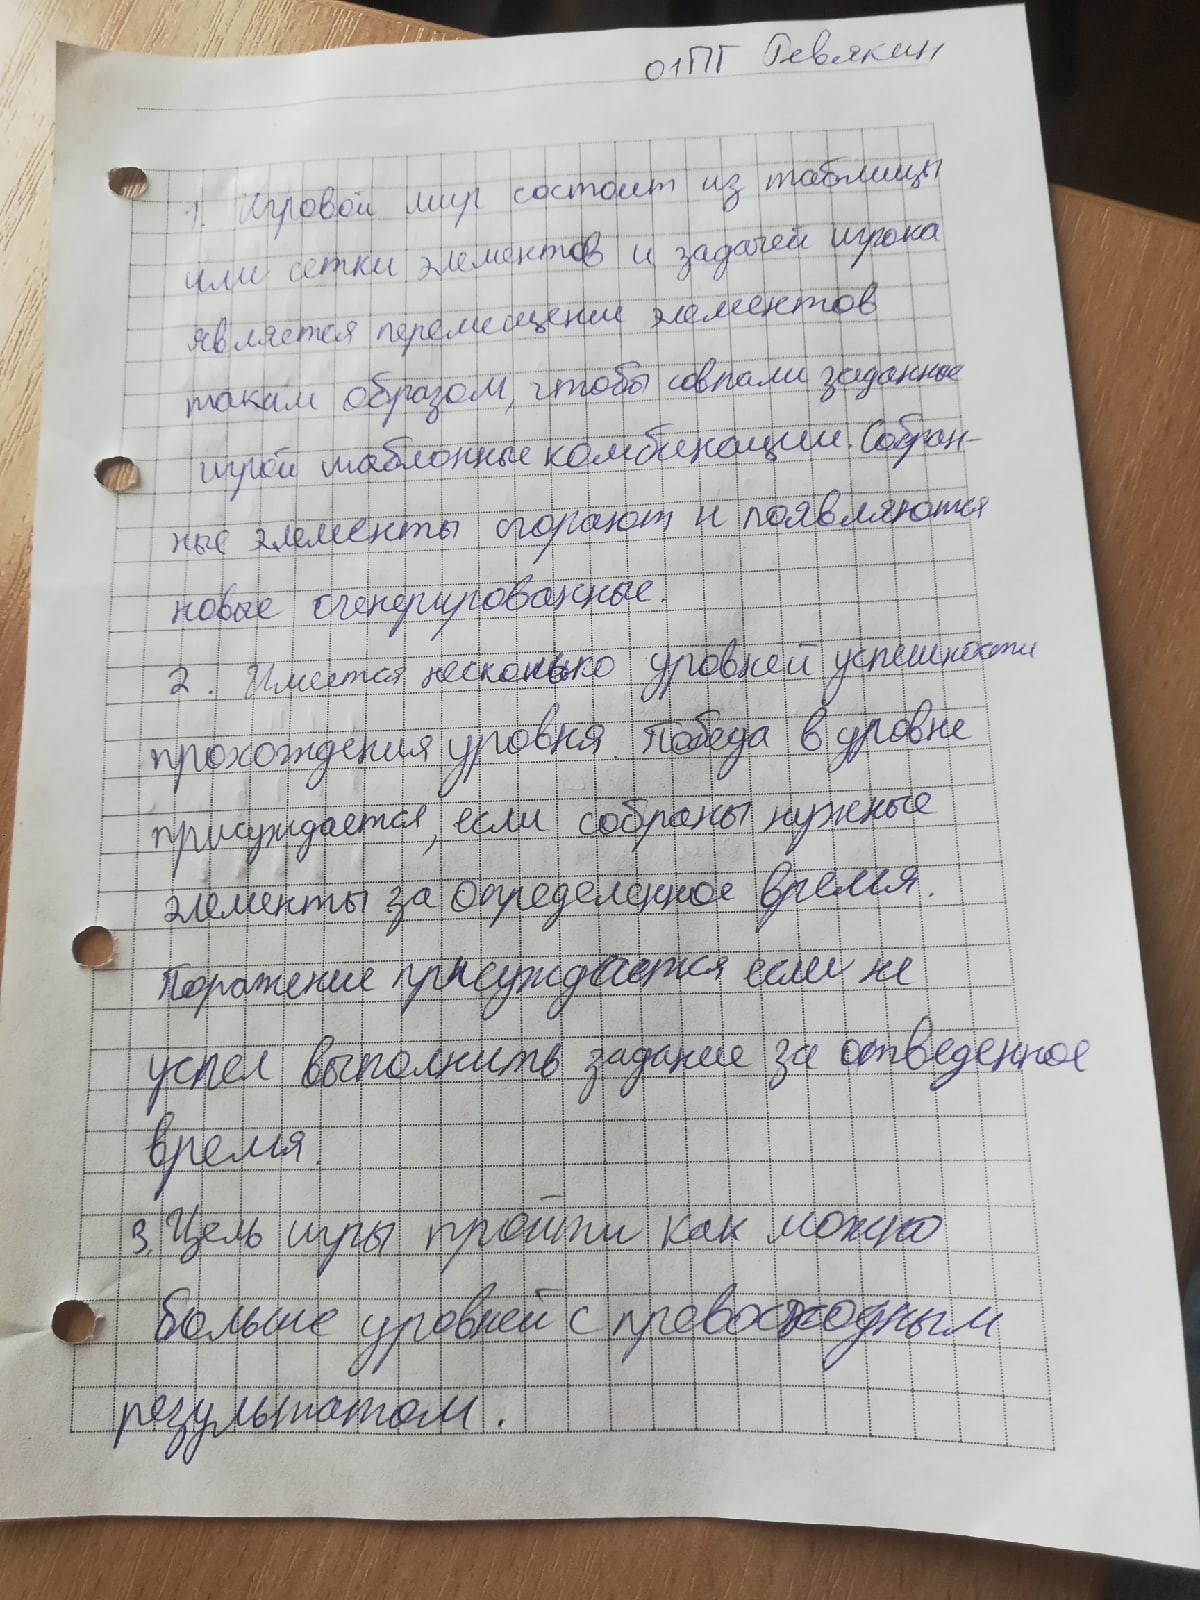 01ПГ Ревякин
1. Игровой мир состоит из таблицы
или сетки элементов и задачей игрока
является перемещение элементов
таким образом, чтобы совпали заданные
игрой шаблонные комбинации. Собран-
ные элементы сгорают и появляются
новые сгенерированные.
2. Имеется несколько уровней успешности
прохождения уровня. Победа в уровне
присуждается, если собраны нужные
элементы за определенное время.
Поражение присуждается если не
успел выполнить задание за отведенное
время.
3. Цель игры пройти как можно
больше уровней с превосходным
результатом.